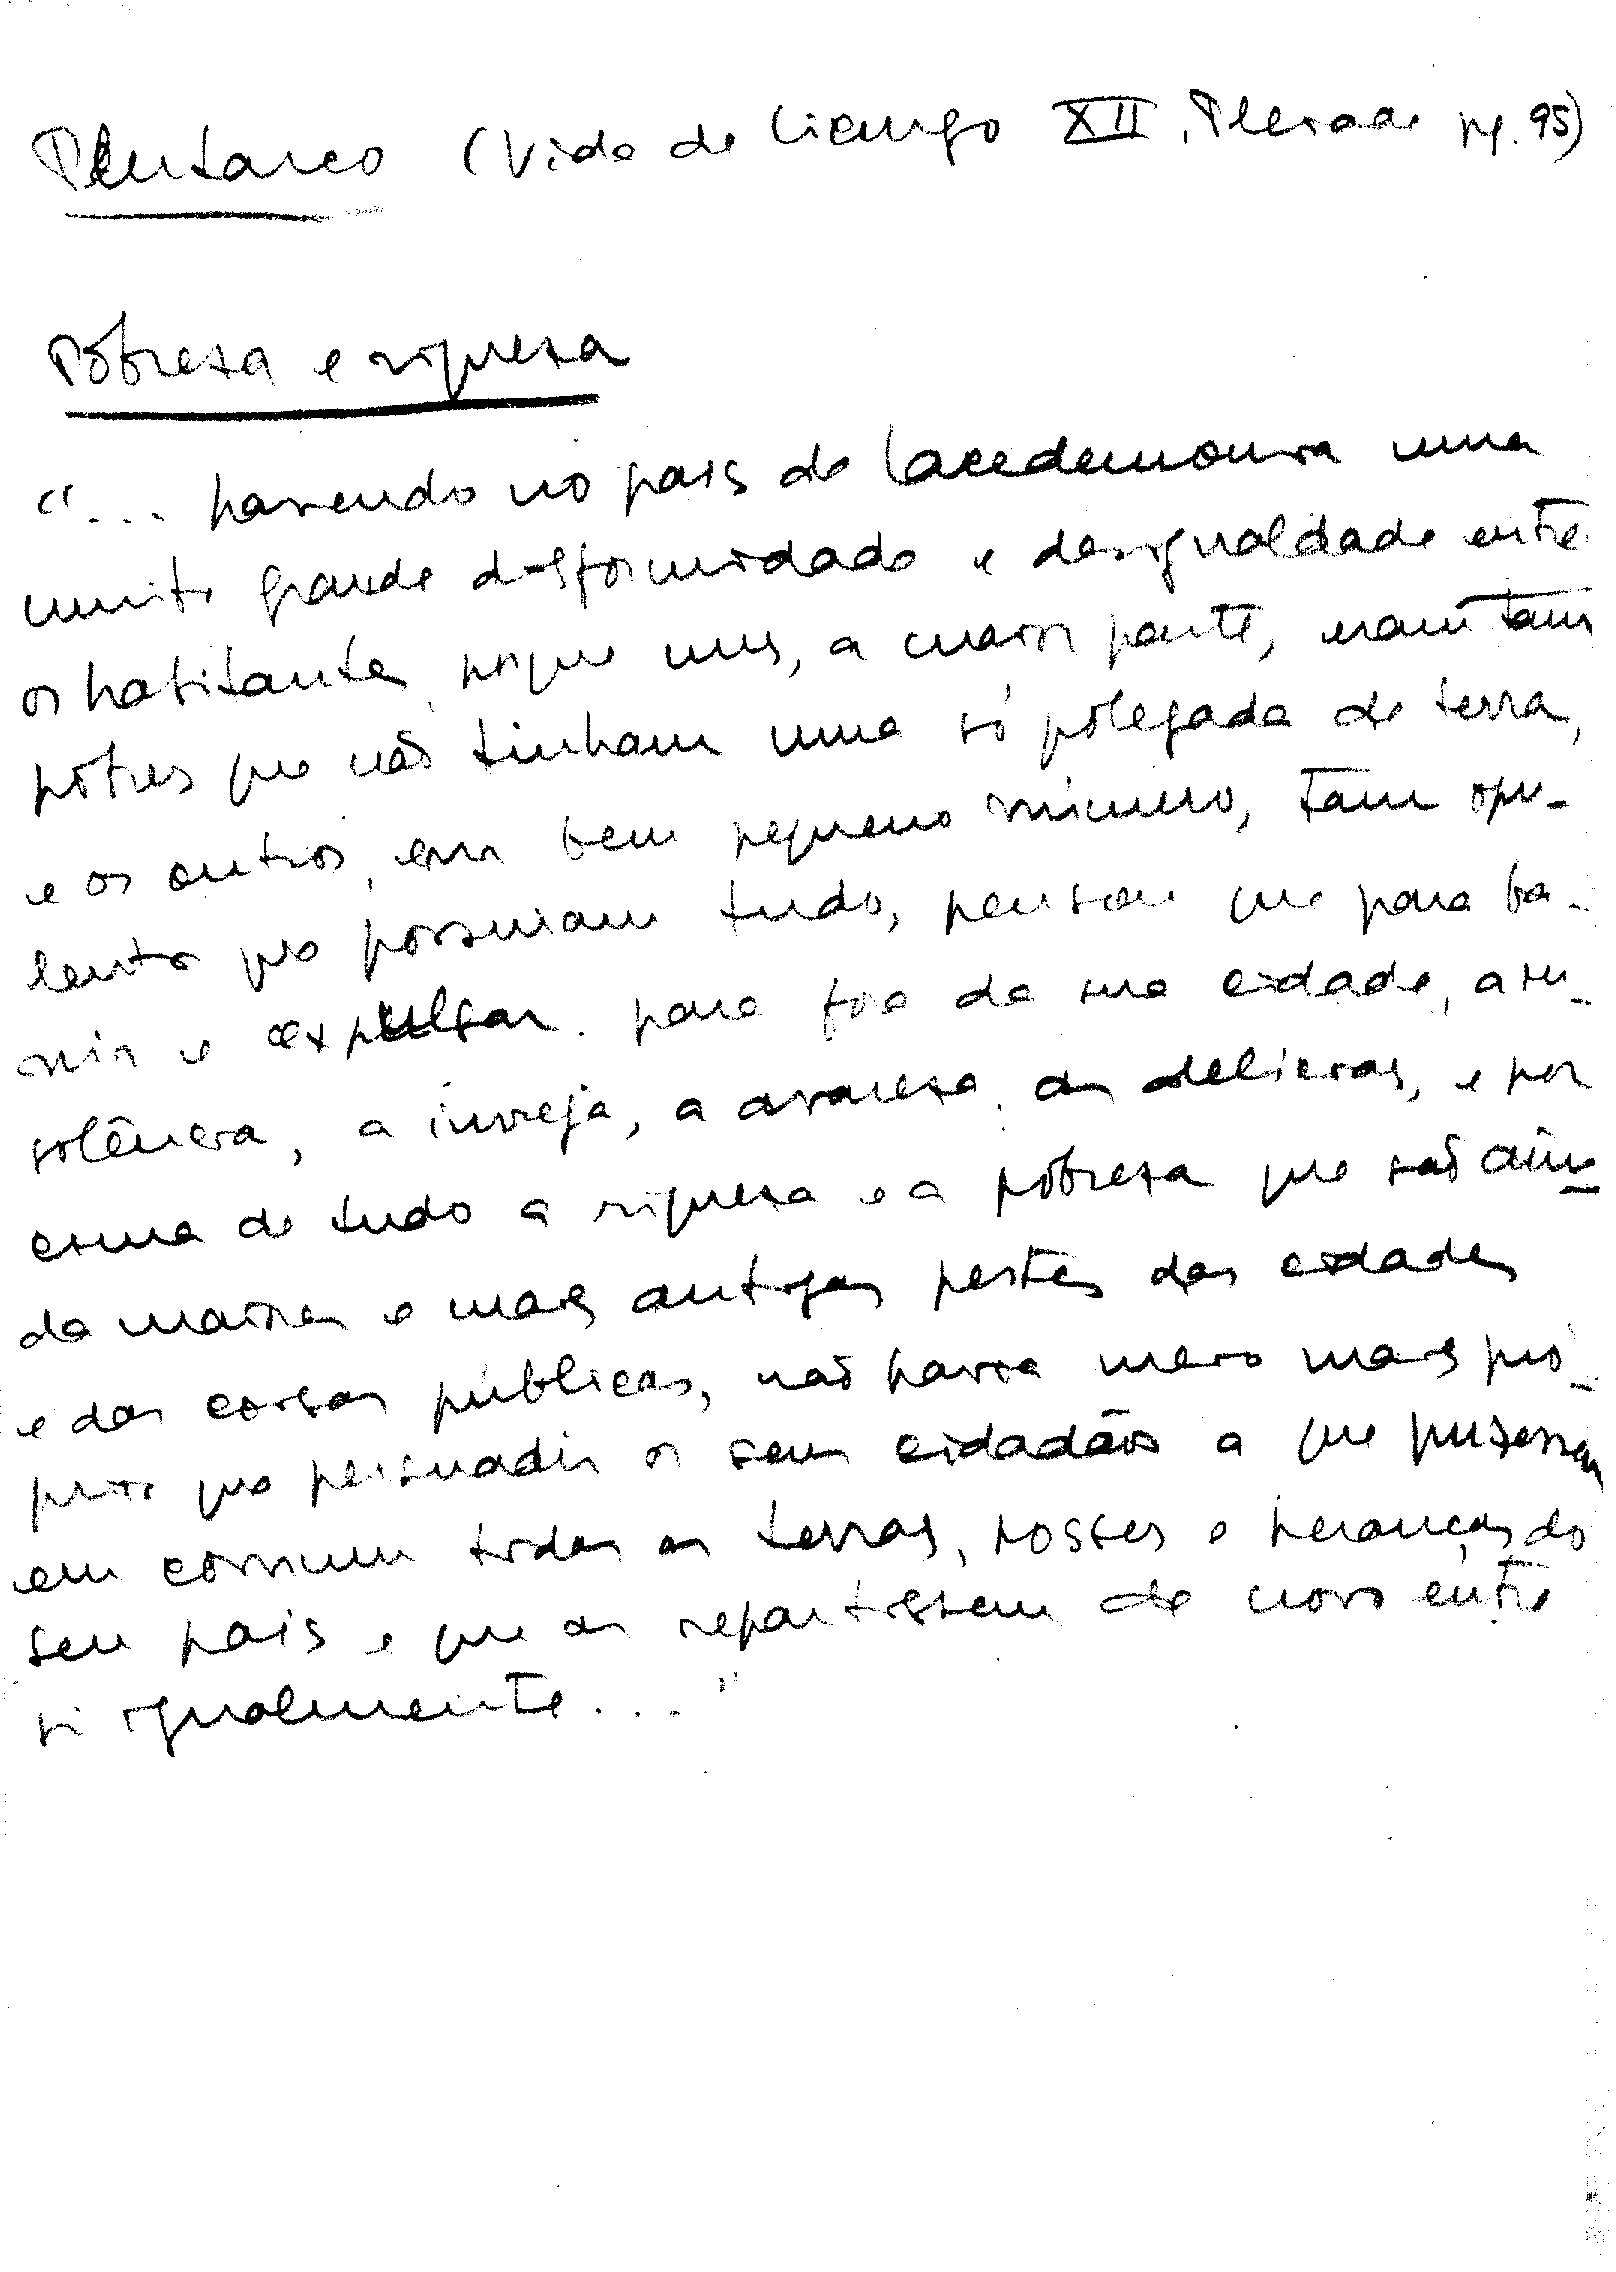 Plutarco (Vida de Licurgo XII, Pleiade pg. 95)
Pobresa e riquesa
"... havendo no pais de Lacedemonia uma
muito grande disformidade e desigualdade entre
os habitantes, porque uns, a maior parte, eram tam
pobres que não tinham uma só polegada de terra,
e os outros, em bem pequeno número, tam opu-
lentos que possuiam tudo, pensou que para ba-
nir e expulsar para fora da sua cidade, a in-
solência, a inveja, a avaresa, as delicias, e por
cima de tudo a riquesa e a pobresa que são ain-
da maiores e mais antigas pestes das cidades
e das coisas públicas, não havia meio mais pró-
prio que persuadir os seus cidadãos a que pusessem
em comum todas as terras, posses e heranças do
seu pais e que as repartissem de novo entre
si igualmente..."